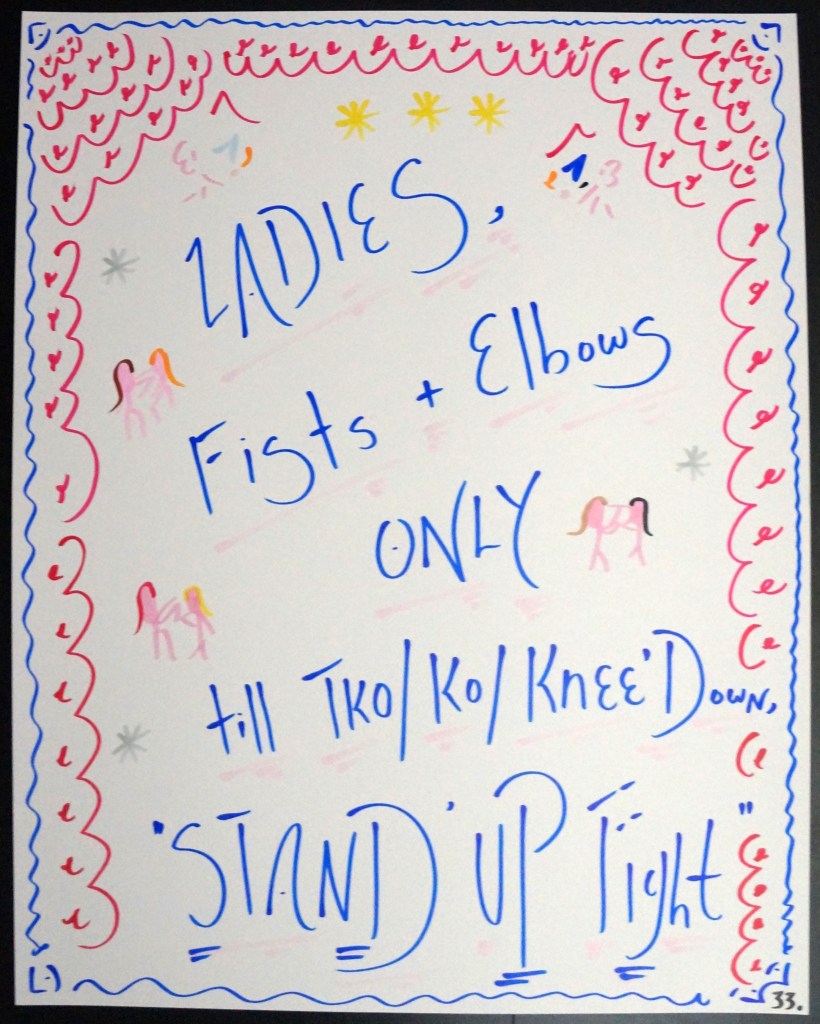 LADIES,
Fists + Elbows
ONLY
till TKO/KO/KNEE'DOWN,
"STAND'UP Fight"
33.